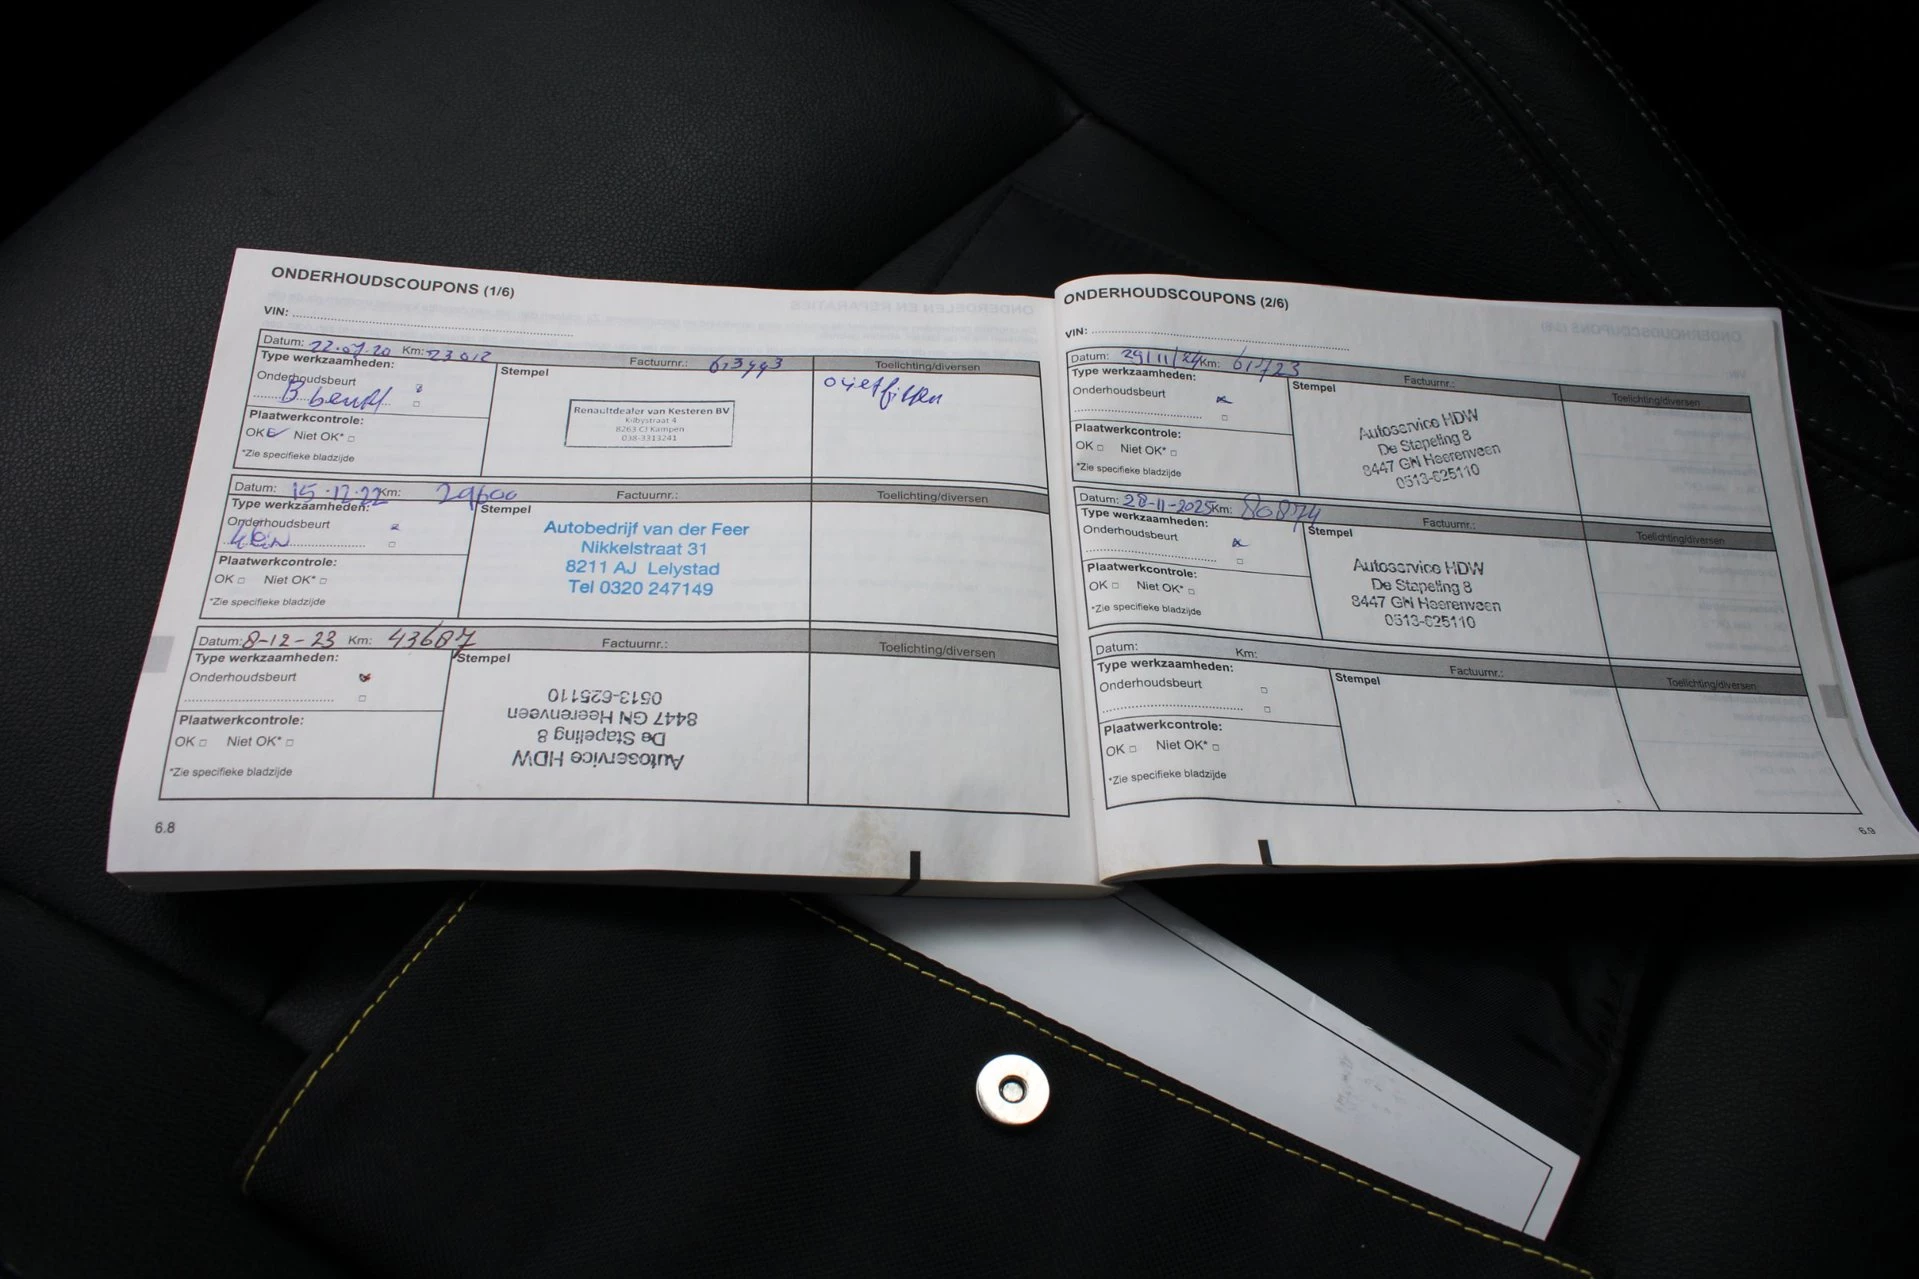 ONDERHOUDSCOUPONS (1/6)
VIN:
Datum: 22.07.20 Km: 23012 Factuurnr.: Toelichting/diversen
Type werkzaamheden:
Onderhoudsbeurt
B beurt
Plaatwerkcontrole:
OK Niet OK*
*Zie specifieke bladzijde
Stempel
Renaultdealer van Kesteren BV
Kilbystraat 4
8263 CJ Kampen
038-3313241
Datum: 15-12-22 Km: 29600 Factuurnr.: Toelichting/diversen
Type werkzaamheden:
Onderhoudsbeurt
klein
Plaatwerkcontrole:
OK Niet OK*
*Zie specifieke bladzijde
Stempel
Autobedrijf van der Feer
Nikkelstraat 31
8211 AJ Lelystad
Tel 0320 247149
Datum: 8-12-23 Km: 43687 Factuurnr.: Toelichting/diversen
Type werkzaamheden:
Onderhoudsbeurt
Plaatwerkcontrole:
OK Niet OK*
*Zie specifieke bladzijde
Stempel
Autoservice HDW
De Stapeling 8
8447 GN Heerenveen
0513-625110
6.8
ONDERHOUDSCOUPONS (2/6)
VIN:
Datum: 29/11/24 Km: Factuurnr.: Toelichting/diversen
Type werkzaamheden:
Onderhoudsbeurt
Plaatwerkcontrole:
OK Niet OK*
*Zie specifieke bladzijde
Stempel
Autoservice HDW
De Stapeling 8
8447 GN Heerenveen
0513-625110
Datum: 28-11-2025 Km: 80874 Factuurnr.: Toelichting/diversen
Type werkzaamheden:
Onderhoudsbeurt
Plaatwerkcontrole:
OK Niet OK*
*Zie specifieke bladzijde
Stempel
Autoservice HDW
De Stapeling 8
8447 GN Heerenveen
0513-625110
Datum: Km: Factuurnr.: Toelichting/diversen
Type werkzaamheden:
Onderhoudsbeurt
Plaatwerkcontrole:
OK Niet OK*
*Zie specifieke bladzijde
Stempel
6.9